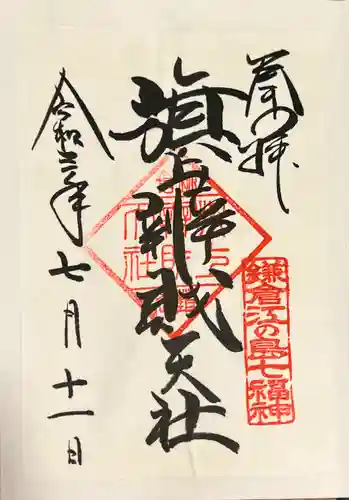 奉拝
旗上弁財天社
鎌倉江の島七福神
令和三年七月十一日